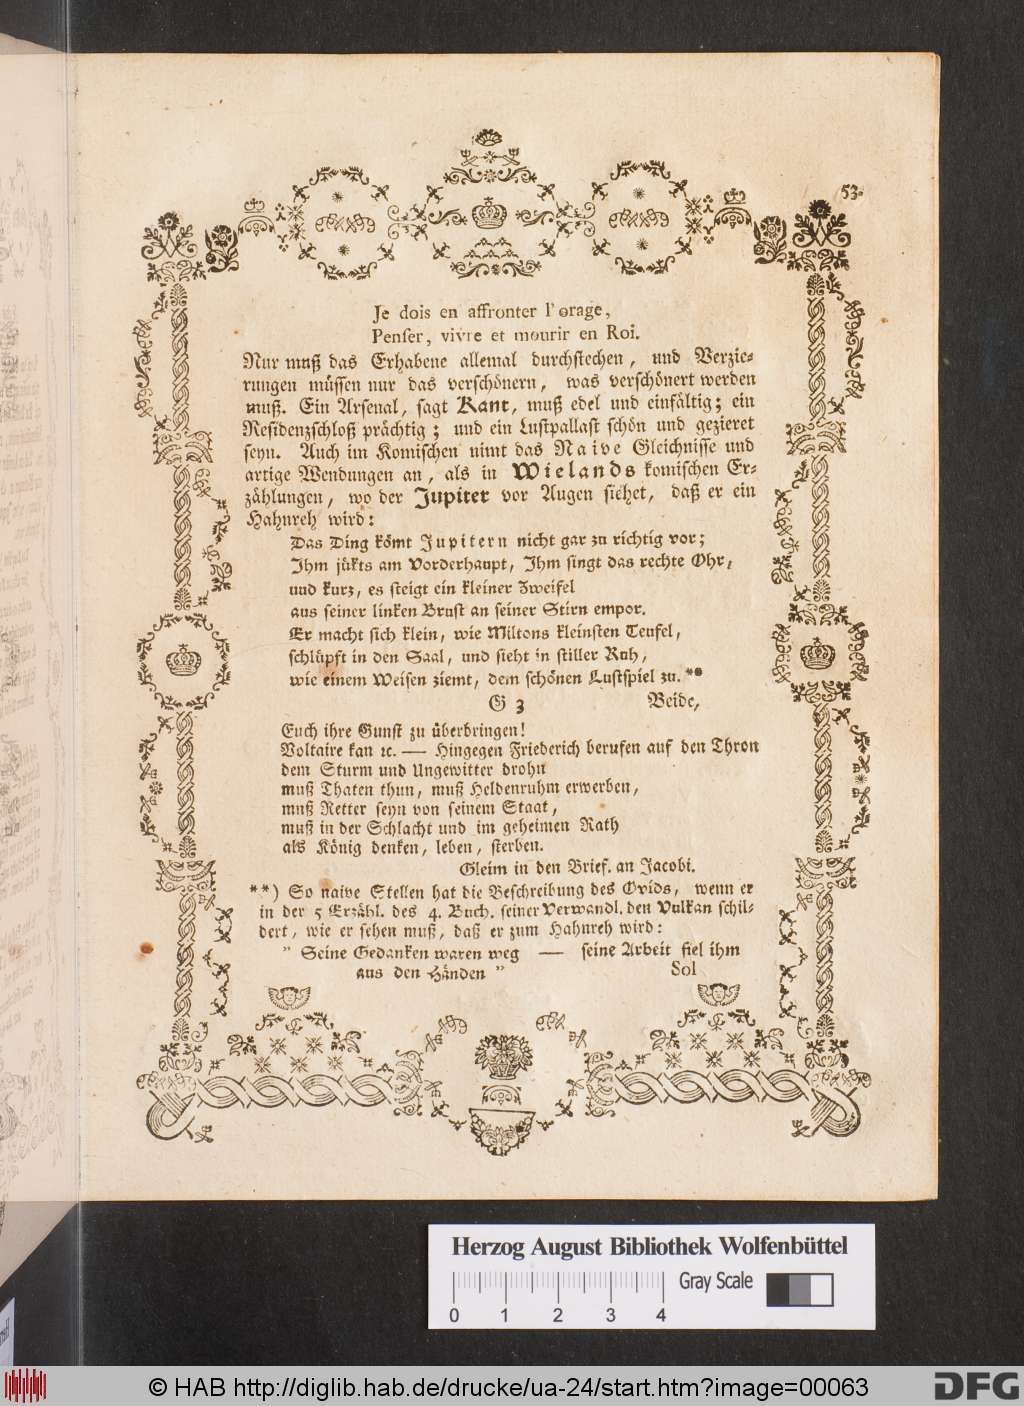 53
Je dois en affronter l'orage,
Penſer, vivre et mourir en Roi.
Nur muß das Erhabene allemal durchſtechen, und Verzie-
rungen müſſen nur das verſchönern, was verſchönert werden
muß. Ein Arſenal, ſagt Kant, muß edel und einfältig; ein
Reſidenzſchloß prächtig; und ein Luſtpallaſt ſchön und gezieret
ſeyn. Auch im Komiſchen nimt das Naive Gleichniſſe und
artige Wendungen an, als in Wielands komiſchen Er-
zählungen, wo der Jupiter vor Augen ſiehet, daß er ein
Hahnreh wird:
Das Ding kömt Jupitern nicht gar zu richtig vor;
Ihm jükts am Vorderhaupt, Ihm ſingt das rechte Ohr,
und kurz, es ſteigt ein kleiner Zweifel
aus ſeiner linken Bruſt an ſeiner Stirn empor.
Er macht ſich klein, wie Miltons kleinſten Teufel,
ſchlüpft in den Saal, und ſieht in ſtiller Ruh,
wie einem Weiſen ziemt, dem ſchönen Luſtſpiel zu. **
G 3 Beide,
Euch ihre Gunſt zu überbringen!
Voltaire kan ꝛc. — Hingegen Friederich berufen auf den Thron
dem Sturm und Ungewitter drohn
muß Thaten thun, muß Heldenruhm erwerben,
muß Retter ſeyn von ſeinem Staat,
muß in der Schlacht und im geheimen Rath
als König denken, leben, ſterben.
Gleim in den Brief. an Jacobi.
**) So naive Stellen hat die Beſchreibung des Ovids, wenn er
in der 5 Erzähl. des 4. Buch. ſeiner Verwandl. den Vulkan ſchil-
dert, wie er ſehen muß, daß er zum Hahnreh wird:
" Seine Gedanken waren weg — ſeine Arbeit fiel ihm
aus den Händen " Sol
Herzog August Bibliothek Wolfenbüttel
Gray Scale
0 1 2 3 4
© HAB http://diglib.hab.de/drucke/ua-24/start.htm?image=00063
DFG